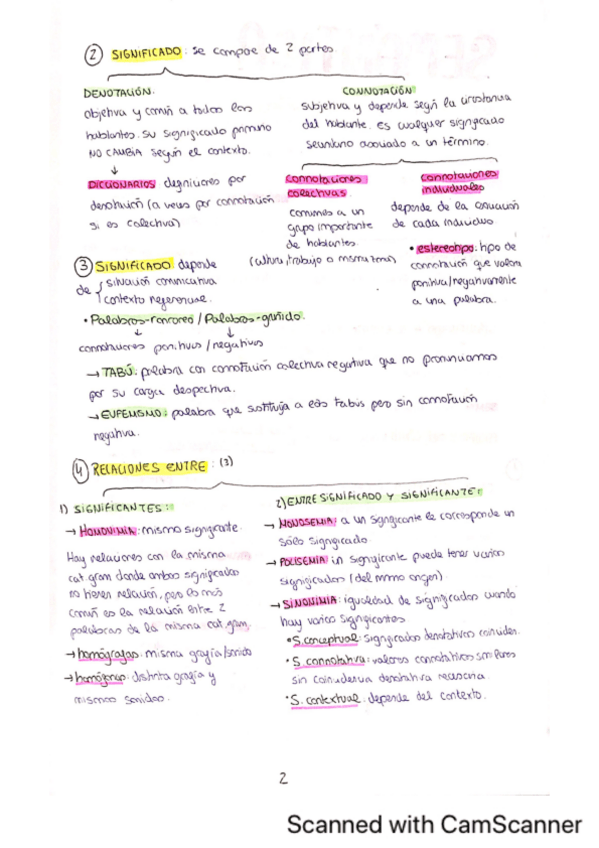 ② SIGNIFICADO: se compone de 2 partes
DENOTACIÓN.
objetiva y común a todos los
hablantes. su significado primario
NO CAMBIA según el contexto.
↓
DICCIONARIOS definiciones por
denotación (a veces por connotación
si es colectiva)
CONNOTACIÓN
subjetiva y depende según la circstancia
del hablante. es cualquier significado
secundario asociado a un término.
connotaciones
colectivas
comunes a un
grupo importante
de hablantes
(cultura, trabajo o misma zona)
connotaciones
individuales
depende de la situación
de cada individuo
• estereotipo: tipo de
connotación que valora
positiva/negativamente
a una palabra.
③ SIGNIFICADO depende
de { situación comunicativa
contexto referencial.
• Palabras-ronroneo / Palabras-gruñido.
↓ ↓
connotaciones positivas / negativas
→ TABÚ: palabra con connotación colectiva negativa que no pronunciamos
por su carga despectiva.
→ EUFEMISMO: palabra que sustituya a estos tabús pero sin connotación
negativa.
④ RELACIONES ENTRE: (3)
1) SIGNIFICANTES:
→ HOMONIMIA: mismo significante.
Hay relaciones con la misma
cat gram donde ambos significados
no tienen relación, pero lo más
común es la relación entre 2
palabras de la misma cat. gram.
→ homógrafas: misma grafía/sonido
→ homófonas: distinta grafía y
mismos sonidos.
2) ENTRE SIGNIFICADO Y SIGNIFICANTE:
→ MONOSEMIA: a un significante le corresponde un
sólo significado
→ POLISEMIA: un significante puede tener varios
significados (del mismo origen)
→ SINONIMIA: igualdad de significados cuando
hay varios significantes.
• S. conceptual: significados denotativos coinciden.
• S. connotativa: valores connotativos similares
sin coincidencia denotativa necesaria.
• S. contextual: depende del contexto.
2
Scanned with CamScanner